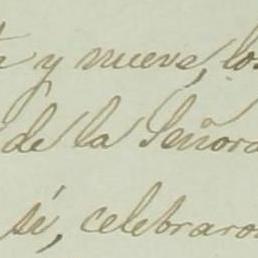 y nueve, los
de la Señora
sí, celebraron